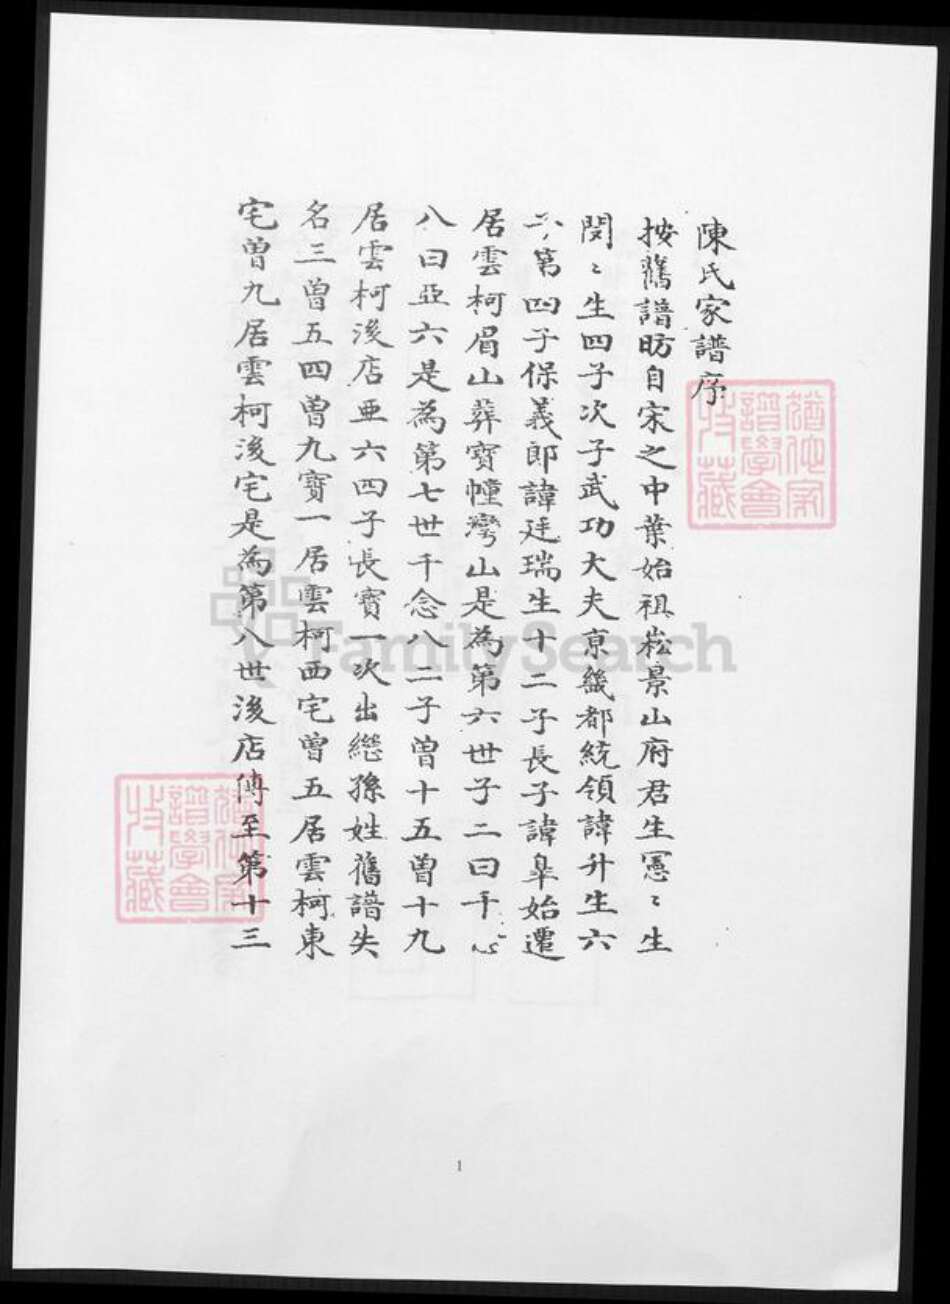 陳氏家譜序
按舊譜昉自宋之中葉始祖崧景山府君生憲〻生
閔〻生四子次子武功大夫京畿都統領諱升生六
子第四子保義郎諱廷瑞生十二子長子諱皐始遷
居雲柯眉山葬寶幢灣山是為第六世子二曰千念
八曰亞六是為第七世千念八二子曾十五曾十九
居雲柯後店亜六四子長寶一次出繼孫姓舊譜失
名三曾五四曾九寶一居雲柯西宅曾五居雲柯東
宅曾九居雲柯後宅是為第八世後店傳至第十三
猶他家
譜學會
收藏
猶他家
譜學會
收藏
FamilySearch
1